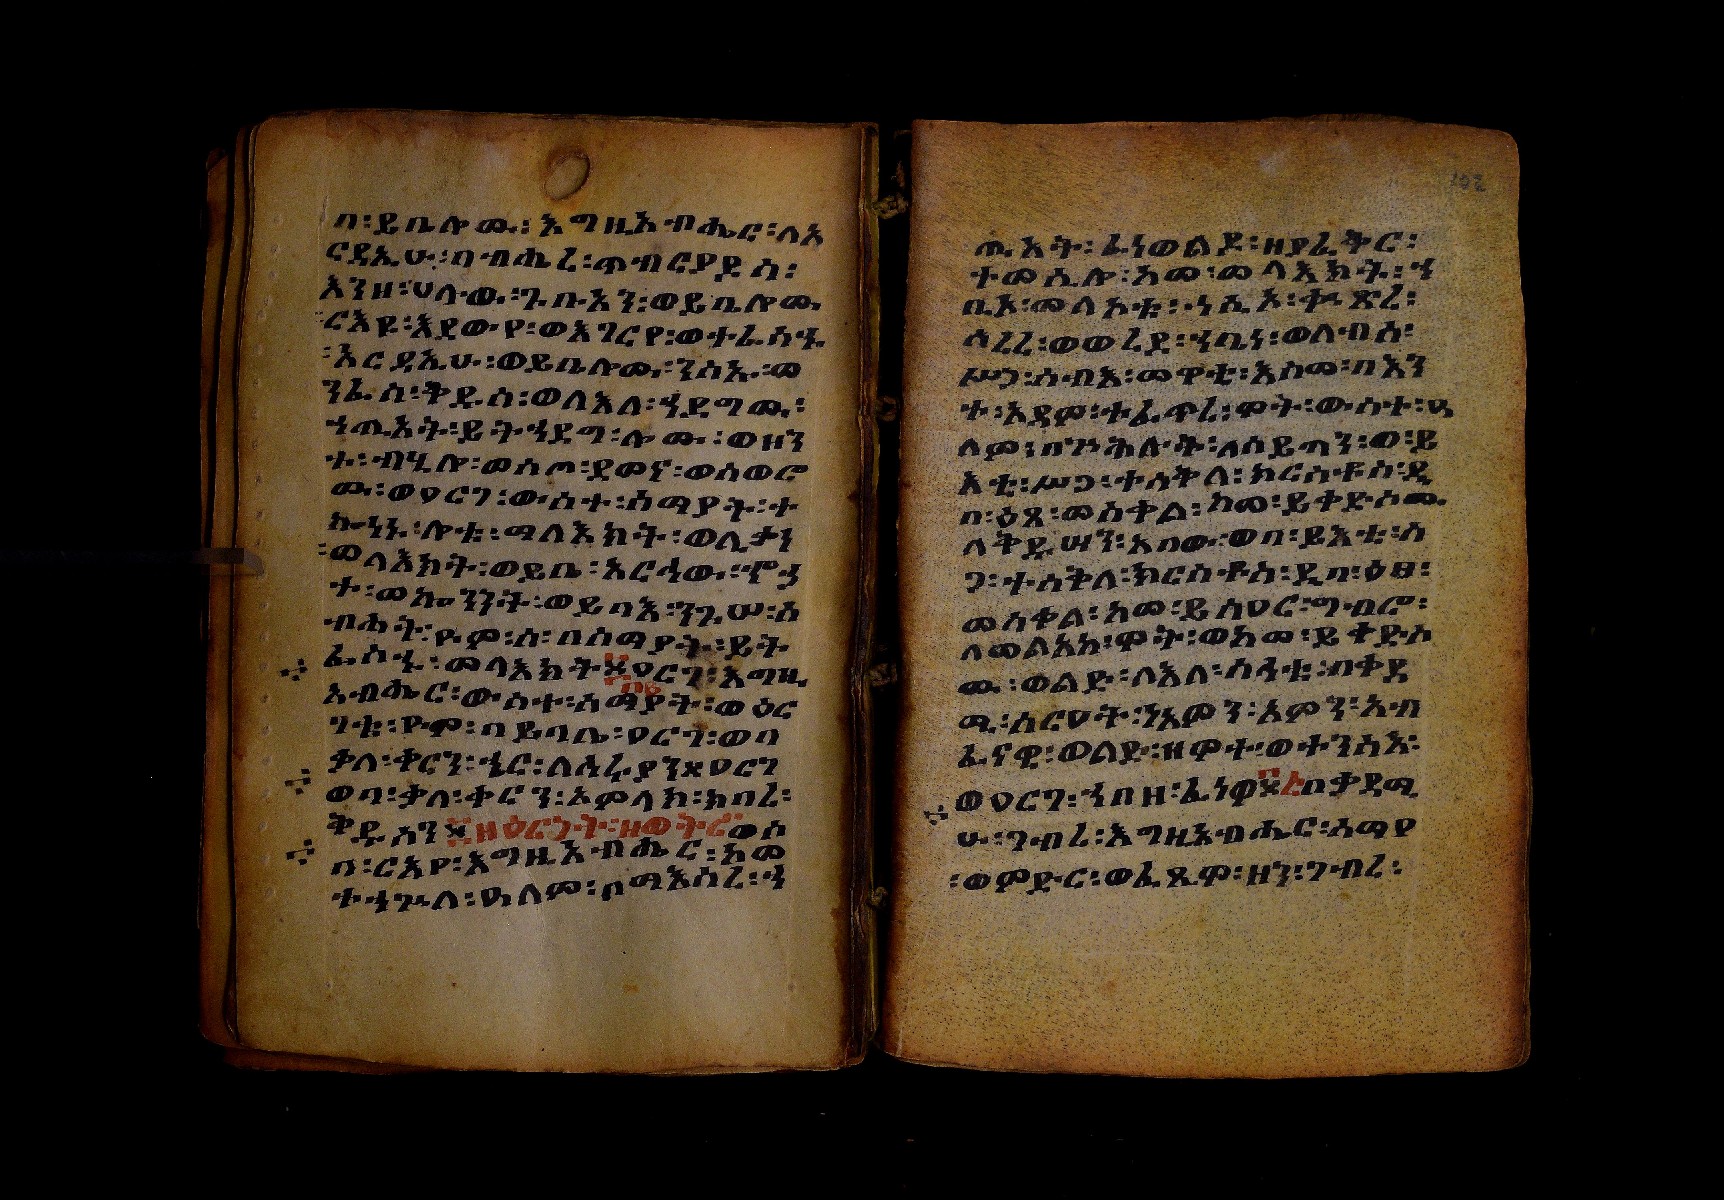 በ፡ይቤሎሙ፡እግዚአብሔር፡ለአ
ርዳኢሁ፡በብሔረ፡ጥብርያዶስ፡
እንዘ፡ሀለዉ፡ጉቡአን፡ወይቤሎሙ
ርእዩ፡እደውየ፡ወእገርየ፡ወተፈሥሑ
አርዳኢሁ፡ወይቤሎሙ፡ንሥኡ፡መ
ንፈሰ፡ቅዱሰ፡ወለእለ፡ኀደግሙ፡
ኀጢአት፡ይትኀደግ፡ሎሙ፡ወዘን
ተ፡ብሂሎ፡መሰጦ፡ደመና፡ወሰወሮ
ሙ፡ወዐርገ፡ውስተ፡ሰማያት፡ተ
ኰነኑ፡ሎቱ፡ማለእክት፡ወሊቃን
መላእክት፡ወይቤ፡አርኅዉ፡ኆኃ
ተ፡መኳንንት፡ወይባእ፡ንጉሠ፡ስ
ብሐት፡ዮም፡ሰ፡በሰማያት፡ይት
ፌሥሑ፡መላእክት፨ዐርገ፡እግዚ
አብሔር፡ውስተ፡ሰማያት፡ወዕር
ገቱ፡ዮም፡በይባቤ፡ዐርገ፡ወበ
ቃለ፡ቀርን፡ኄር፡ለሐራያን፨ዐርገ
ወበ፡ቃለ፡ቀርን፡አምላክ፡ክበረ፡
ቅዱሳን፨ዘዕርገት፡ዘወትረ፡ወሶ
በ፡ርእየ፡እግዚአብሔር፡ከመ
ተኀጕለ፡ዓለም፡በማእሰረ፡ኀ
ጢአት፡ፈነወልደ፡ዘያፈቅር፡
ተመሲሎ፡ከመ፡መላእክት፡ኀ
ቢአ፡መለኮቱ፡ነሢአ፡ትጕጽረ፡
ሰረረ፡ወወረደ፡ኀቤነ፡ወለብሰ፡
ሥጋ፡ሰብእ፡መዋቲ፡እስመ፡በእን
ተ፡አዳም፡ተፈጥረ፡ሞት፡ውስተ፡ዓ
ለም፡በጕሕሉት፡ለሰይጣን፡ወ፡ይ
እቲ፡ሥጋ፡ተሰቅለ፡ክርስቶስ፡ዲ
በ፡ዕፀ፡መስቀል፡ከመ፡ይቀድሶሙ
ለቅዱሣን፡አበው፡ወበ፡ይእቲ፡ሥ
ጋ፡ተሰቅለ፡ክርስቶስ፡ዲበ፡ዕፀ፡
መስቀል፡ከመ፡ይሰዐር፡ግብሮ፡
ለመልአከ፡ሞት፡ወከመ፡ይቀድሶ
ሙ፡ወልድ፡ለእለ፡ስሓቱ፡በቀዳ
ሚ፡ስርዐት፡ነአምን፡አምን፡አብ
ፈናዊ፡ወልድ፡ዘሞተ፡ወተንሥአ፡
ወዐርገ፡ኀበ፡ዘ፡ፈነዎ፨በቀዳሚ
ሁ፡ገብረ፡እግዚአብሔር፡ሰማየ
፡ወምድር፡ወፈጺሞ፡ዘን፡ገብረ፡